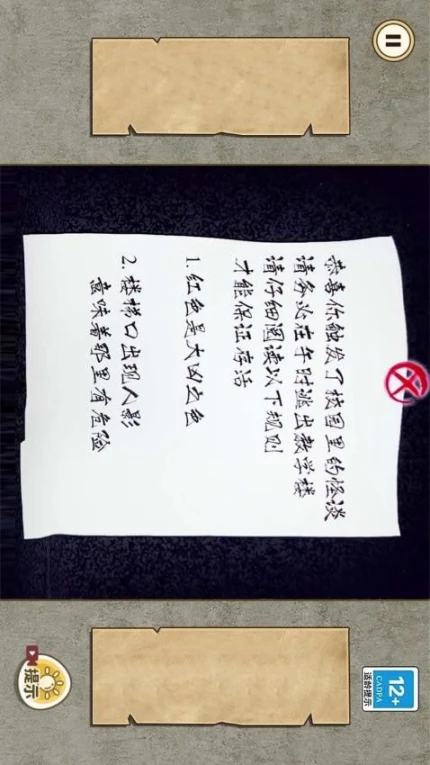 恭喜你触发了校园里的怪谈
请务必在午时逃出教学楼
请仔细阅读以下规则
才能保证存活
1. 红色是大凶之色
2. 楼梯口出现人影
意味着那里有危险
提示
12+
CADPA
适龄提示